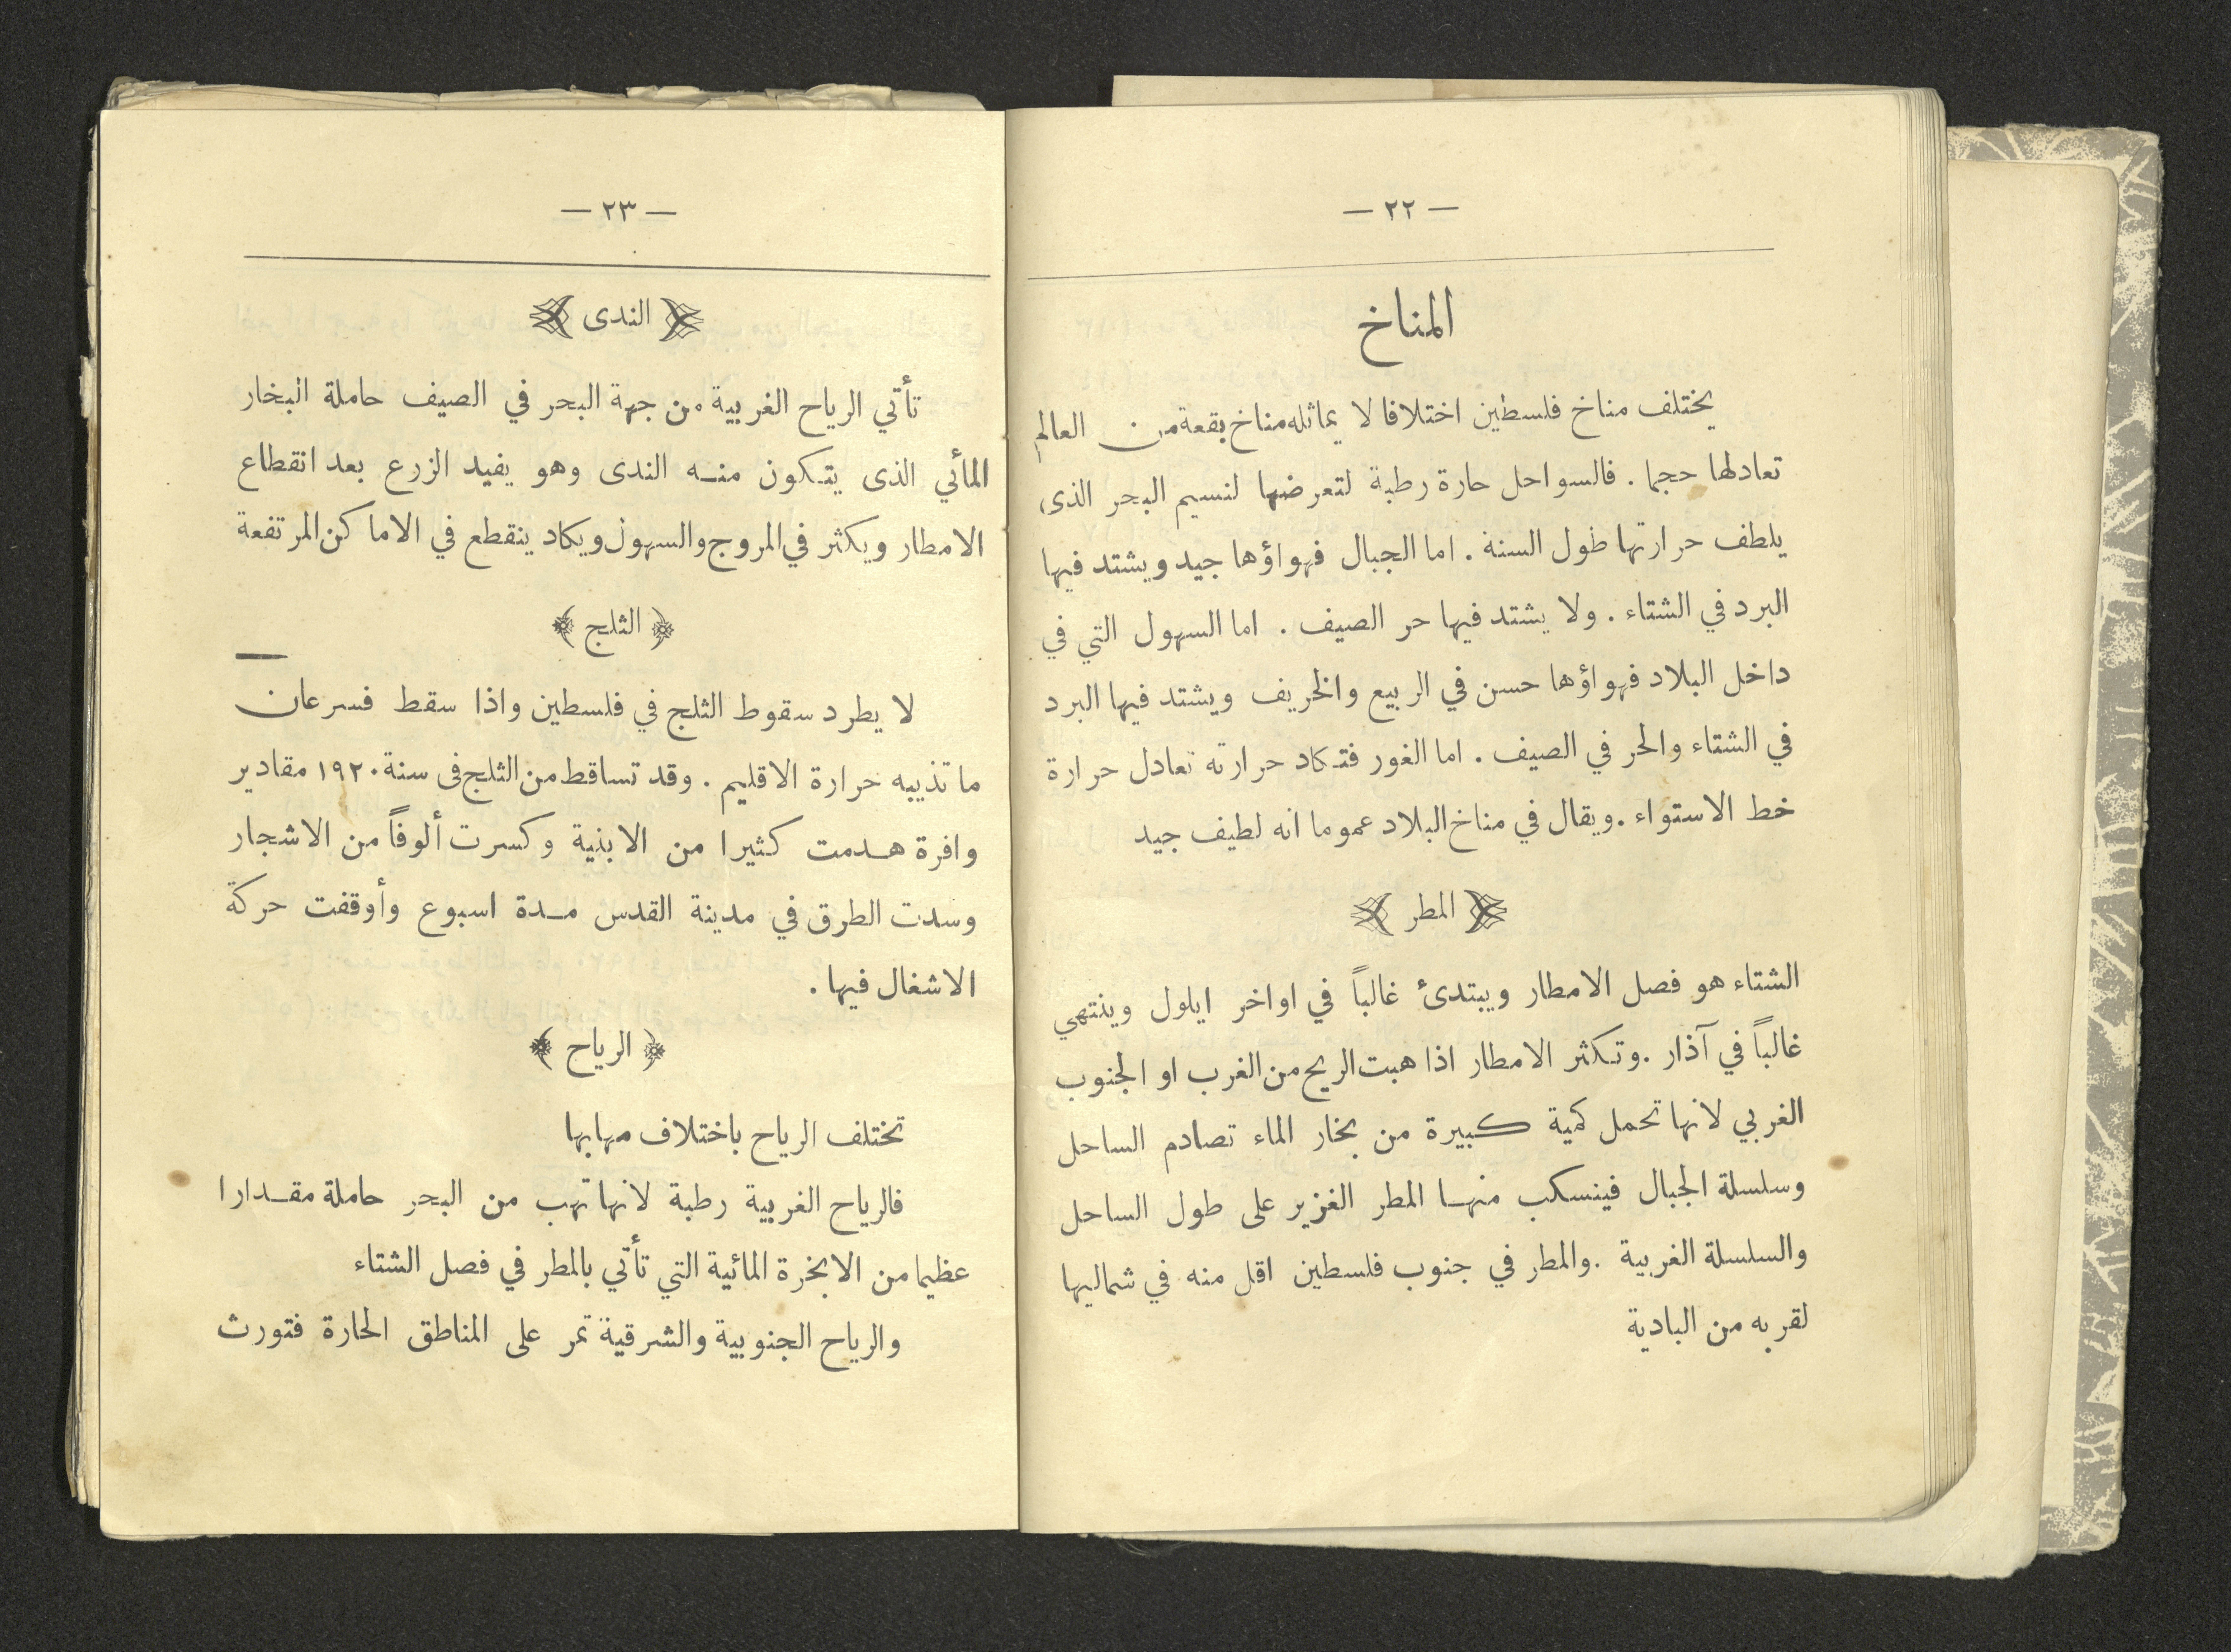 — ٢٢ —
المناخ
يختلف مناخ فلسطين اختلافا لا يماثله مناخ بقعة من العالم
تعادلها حجما . فالسواحل حارة رطبة لتعرضها لنسيم البحر الذى
يلطف حرارتها طول السنة . اما الجبال فهواؤها جيد ويشتد فيها
البرد في الشتاء . ولا يشتد فيها حر الصيف . اما السهول التي في
داخل البلاد فهواؤها حسن في الربيع والخريف ويشتد فيها البرد
في الشتاء والحر في الصيف . اما الغور فتكاد حرارته تعادل حرارة
خط الاستواء . ويقال في مناخ البلاد عموما انه لطيف جيد
﴿ المطر ﴾
الشتاء هو فصل الامطار ويبتدئ غالباً في اواخر ايلول وينتهي
غالباً في آذار . وتكثر الامطار اذا هبت الريح من الغرب او الجنوب
الغربي لانها تحمل كمية كبيرة من بخار الماء تصادم الساحل
وسلسلة الجبال فينسكب منها المطر الغزير على طول الساحل
والسلسلة الغربية . والمطر في جنوب فلسطين اقل منه في شماليها
لقربه من البادية
— ٢٣ —
﴿ الندى ﴾
تأتي الرياح الغربية من جهة البحر في الصيف حاملة البخار
المائي الذى يتكون منه الندى وهو يفيد الزرع بعد انقطاع
الامطار ويكثر في المروج والسهول ويكاد ينقطع في الاماكن المرتفعة
﴿ الثلج ﴾
لا يطرد سقوط الثلج في فلسطين واذا سقط فسرعان
ما تذيبه حرارة الاقليم . وقد تساقط من الثلج فى سنة ١٩٢٠ مقادير
وافرة هدمت كثيرا من الابنية وكسرت ألوفاً من الاشجار
وسدت الطرق في مدينة القدس مدة اسبوع وأوقفت حركة
الاشغال فيها .
﴿ الرياح ﴾
تختلف الرياح باختلاف مهابها
فالرياح الغربية رطبة لانها تهب من البحر حاملة مقدارا
عظيما من الابخرة المائية التي تأتي بالمطر في فصل الشتاء
والرياح الجنوبية والشرقية تمر على المناطق الحارة فتورث